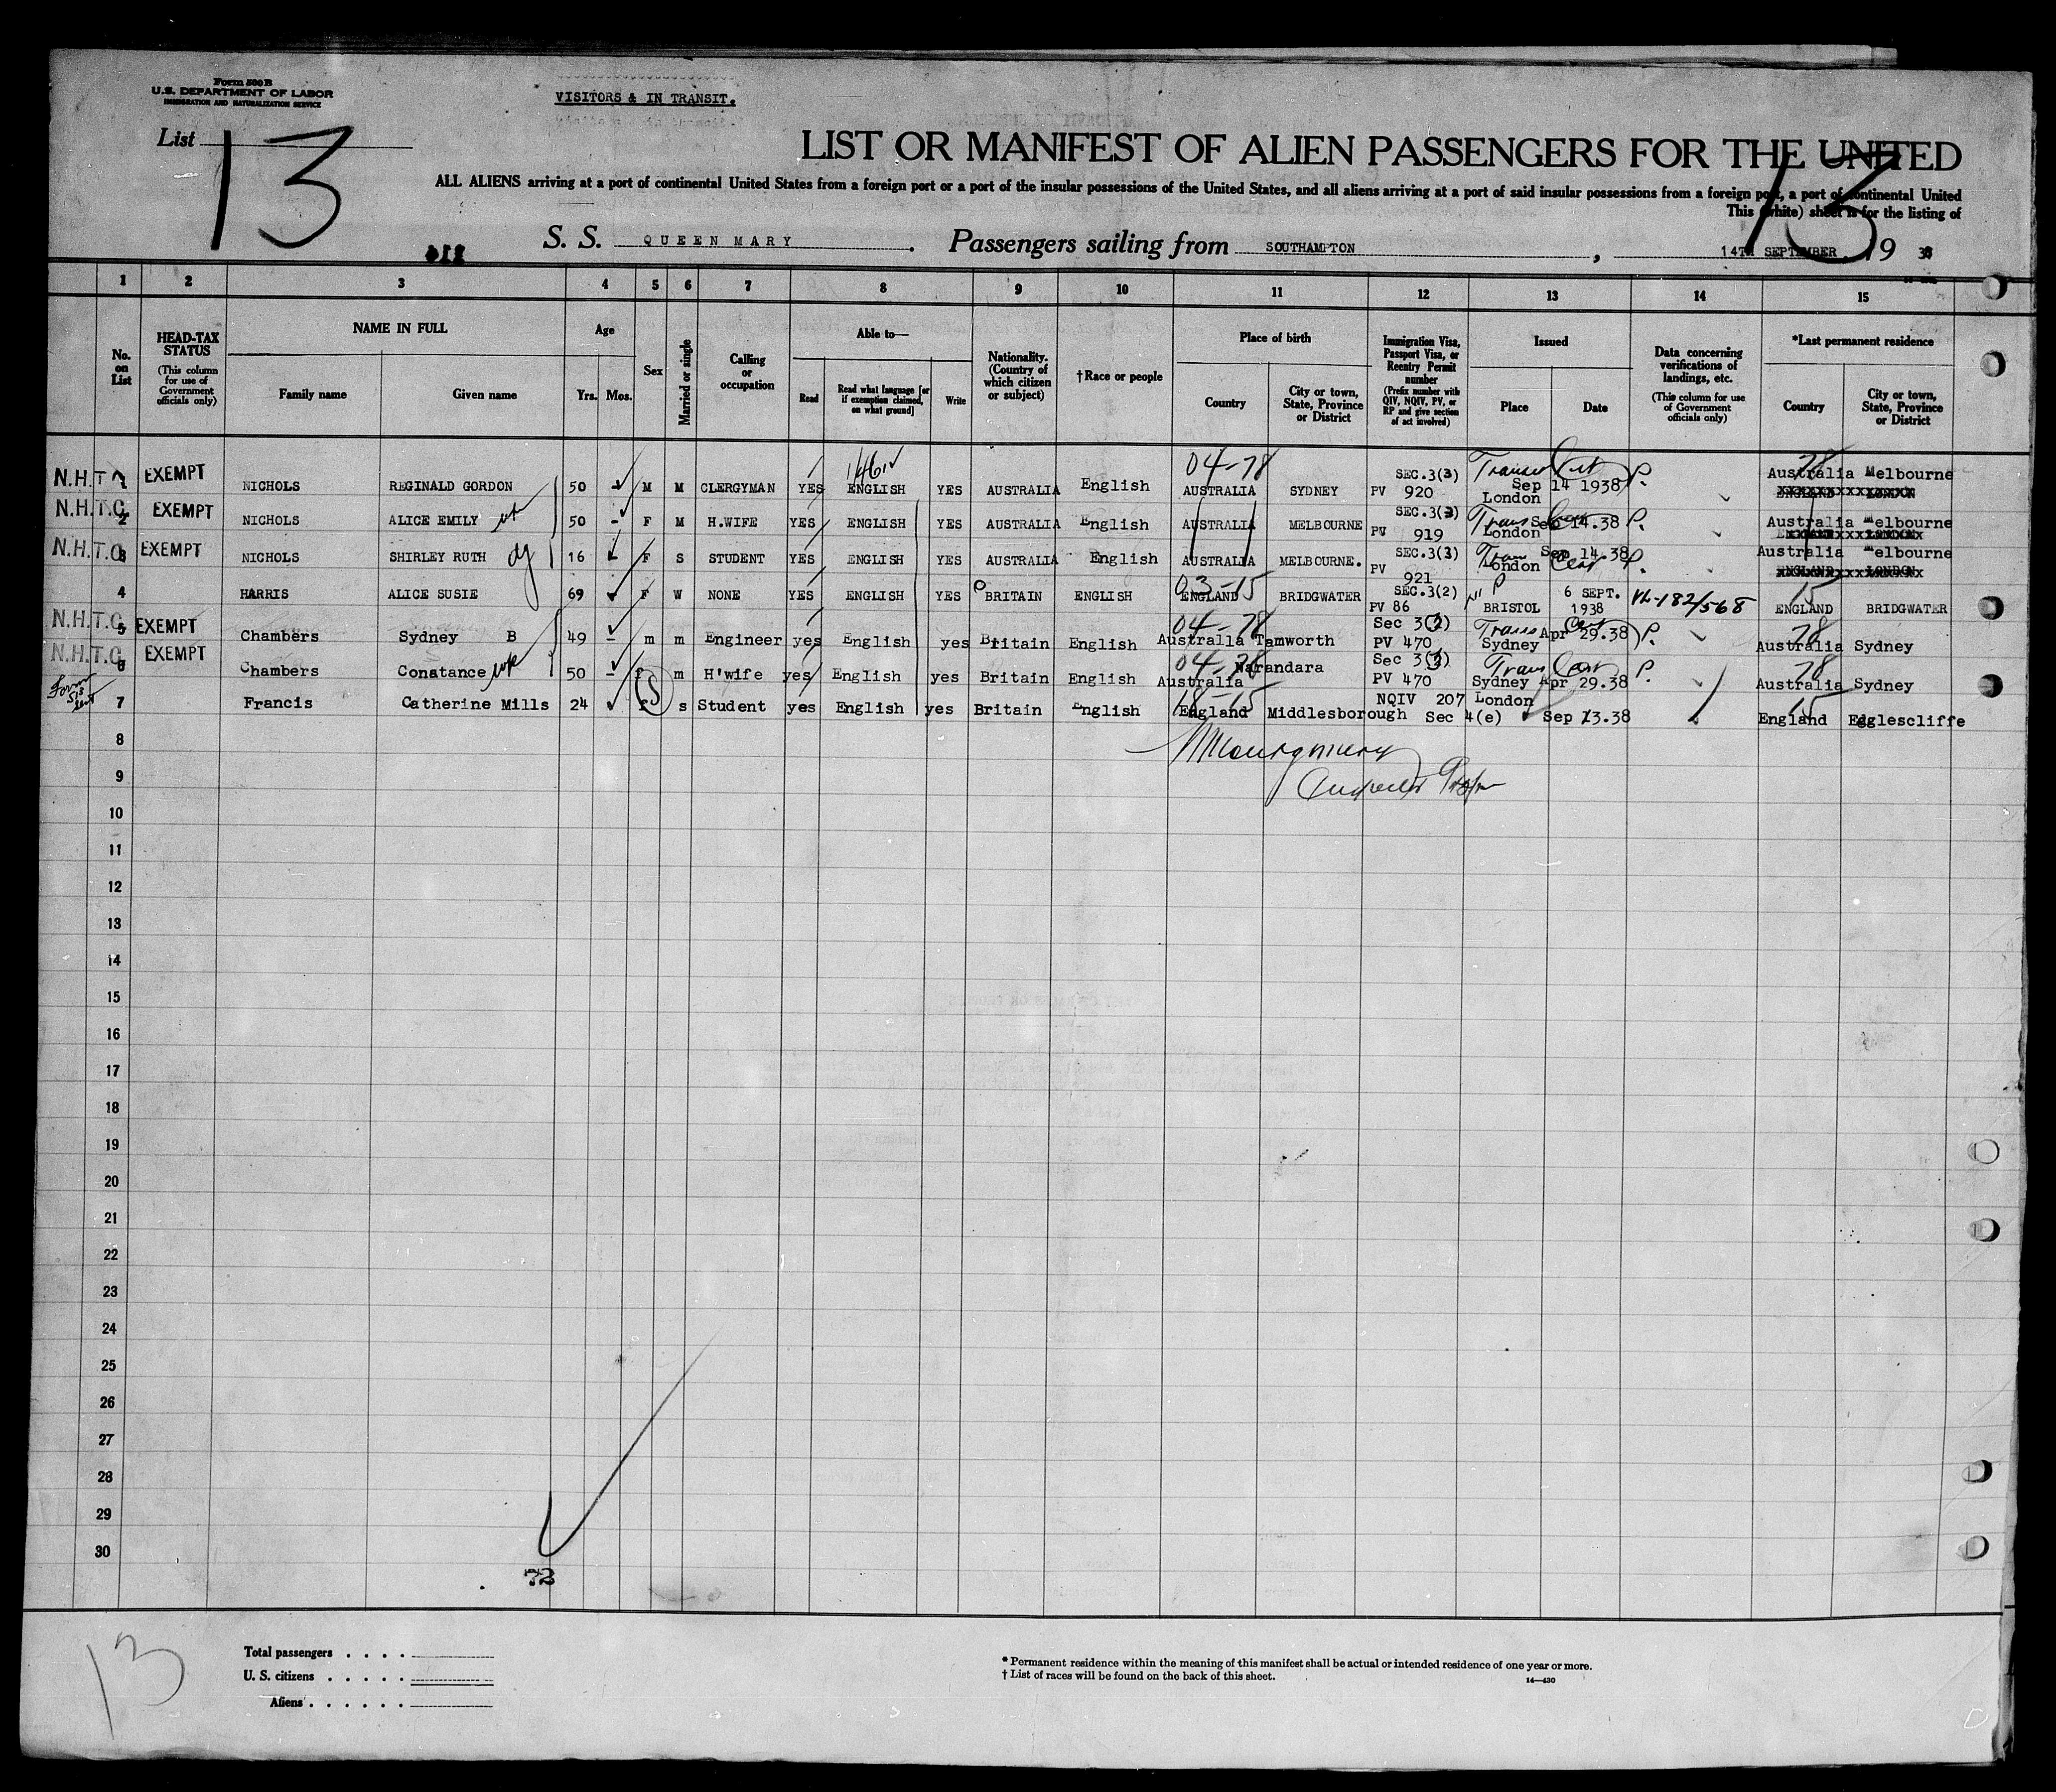 Form 500B
U.S. DEPARTMENT OF LABOR
IMMIGRATION AND NATURALIZATION SERVICE
VISITORS & IN TRANSIT.
List 13
LIST OR MANIFEST OF ALIEN PASSENGERS FOR THE UNITED
13
ALL ALIENS arriving at a port of continental United States from a foreign port or a port of the insular possessions of the United States, and all aliens arriving at a port of said insular possessions from a foreign port, a port of continental United
This (white) sheet is for the listing of
S. S. QUEEN MARY. Passengers sailing from SOUTHAMPTON, 14TH SEPTEMBER 1938
1 2 3 4 5 6 7 8 9 10 11 12 13 14 15
No. on List
HEAD-TAX STATUS (This column for use of Government officials only)
NAME IN FULL
Family name Given name
Age
Yrs. Mos.
Sex
Married or single
Calling or occupation
Able to—
Read
Read what language [or if exemption claimed, on what ground]
Write
Nationality. (Country of which citizen or subject)
†Race or people
Place of birth
Country
City or town, State, Province or District
Immigration Visa, Passport Visa, or Reentry Permit number (Prefix number with QIV, NQIV, PV, or RP and give section of act involved)
Issued
Place Date
Data concerning verifications of landings, etc. (This column for use of Government officials only)
*Last permanent residence
Country
City or town, State, Province or District
N.H.T. 1 EXEMPT NICHOLS REGINALD GORDON 50 - M M CLERGYMAN YES ENGLISH YES AUSTRALIA English 04-78 AUSTRALIA SYDNEY SEC.3(3) PV 920 London Sep 14 1938 P. 78 Australia Melbourne
N.H.T.C. 2 EXEMPT NICHOLS ALICE EMILY 50 - F M H.WIFE YES ENGLISH YES AUSTRALIA English AUSTRALIA MELBOURNE SEC.3(3) PV 919 London Sep 14.38 P. Australia Melbourne
N.H.T.C. 3 EXEMPT NICHOLS SHIRLEY RUTH 16 F S STUDENT YES ENGLISH YES AUSTRALIA English AUSTRALIA MELBOURNE. SEC.3(3) PV 921 London Sep 14.38 P. Australia Melbourne
4 HARRIS ALICE SUSIE 69 F W NONE YES ENGLISH YES BRITAIN ENGLISH 03-15 ENGLAND BRIDGWATER SEC.3(2) PV 86 BRISTOL 6 SEPT. 1938 15 ENGLAND BRIDGWATER
N.H.T.C. 5 EXEMPT Chambers Sydney B 49 - m m Engineer yes English yes Britain English 04-78 Australia Tamworth Sec 3(3) PV 470 Sydney Apr 29.38 P. 78 Australia Sydney
N.H.T.C. 6 EXEMPT Chambers Conatance 50 - m H'wife yes English yes Britain English 04-78 Australia Narandara Sec 3(3) PV 470 Sydney Apr 29.38 P. 78 Australia Sydney
7 Francis Catherine Mills 24 S s Student yes English yes Britain English 18-15 England Middlesborough NQIV 207 Sec 4(e) London Sep 13.38 15 England Egglescliffe
8
Montgomery
9
10
11
12
13
14
15
16
17
18
19
20
21
22
23
24
25
26
27
28
29
30
72
13
Total passengers
U. S. citizens
Aliens
* Permanent residence within the meaning of this manifest shall be actual or intended residence of one year or more.
† List of races will be found on the back of this sheet.
14—430